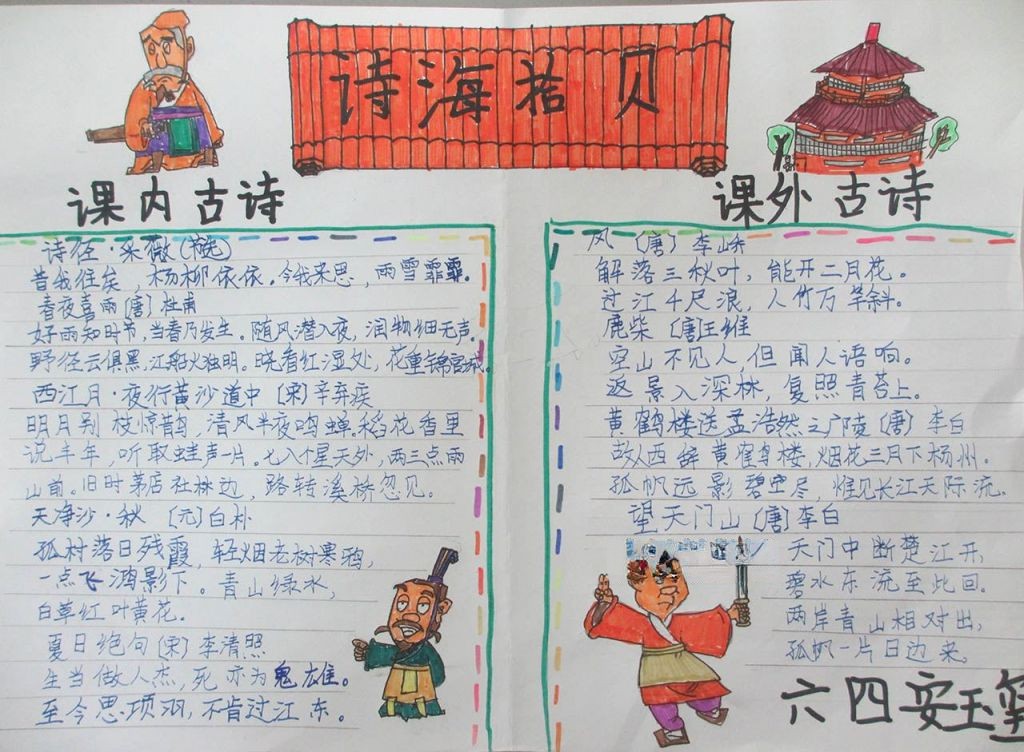 诗海拾贝
课内古诗
诗经·采薇(节选)
昔我往矣,杨柳依依。今我来思,雨雪霏霏。
春夜喜雨[唐]杜甫
好雨知时节,当春乃发生。随风潜入夜,润物细无声。
野径云俱黑,江船火独明。晓看红湿处,花重锦官城。
西江月·夜行黄沙道中[宋]辛弃疾
明月别枝惊鹊,清风半夜鸣蝉。稻花香里
说丰年,听取蛙声一片。七八个星天外,两三点雨
山前。旧时茅店社林边,路转溪桥忽见。
天净沙·秋 [元]白朴
孤村落日残霞,轻烟老树寒鸦,
一点飞鸿影下。青山绿水,
白草红叶黄花。
夏日绝句[宋]李清照
生当做人杰,死亦为鬼雄。
至今思项羽,不肯过江东。
课外古诗
风 [唐]李峤
解落三秋叶,能开二月花。
过江千尺浪,入竹万竿斜。
鹿柴 [唐]王维
空山不见人,但闻人语响。
返景入深林,复照青苔上。
黄鹤楼送孟浩然之广陵[唐]李白
故人西辞黄鹤楼,烟花三月下杨州。
孤帆远影碧空尽,惟见长江天际流。
望天门山[唐]李白
天门中断楚江开,
碧水东流至此回。
两岸青山相对出,
孤帆一片日边来。
六四安玉